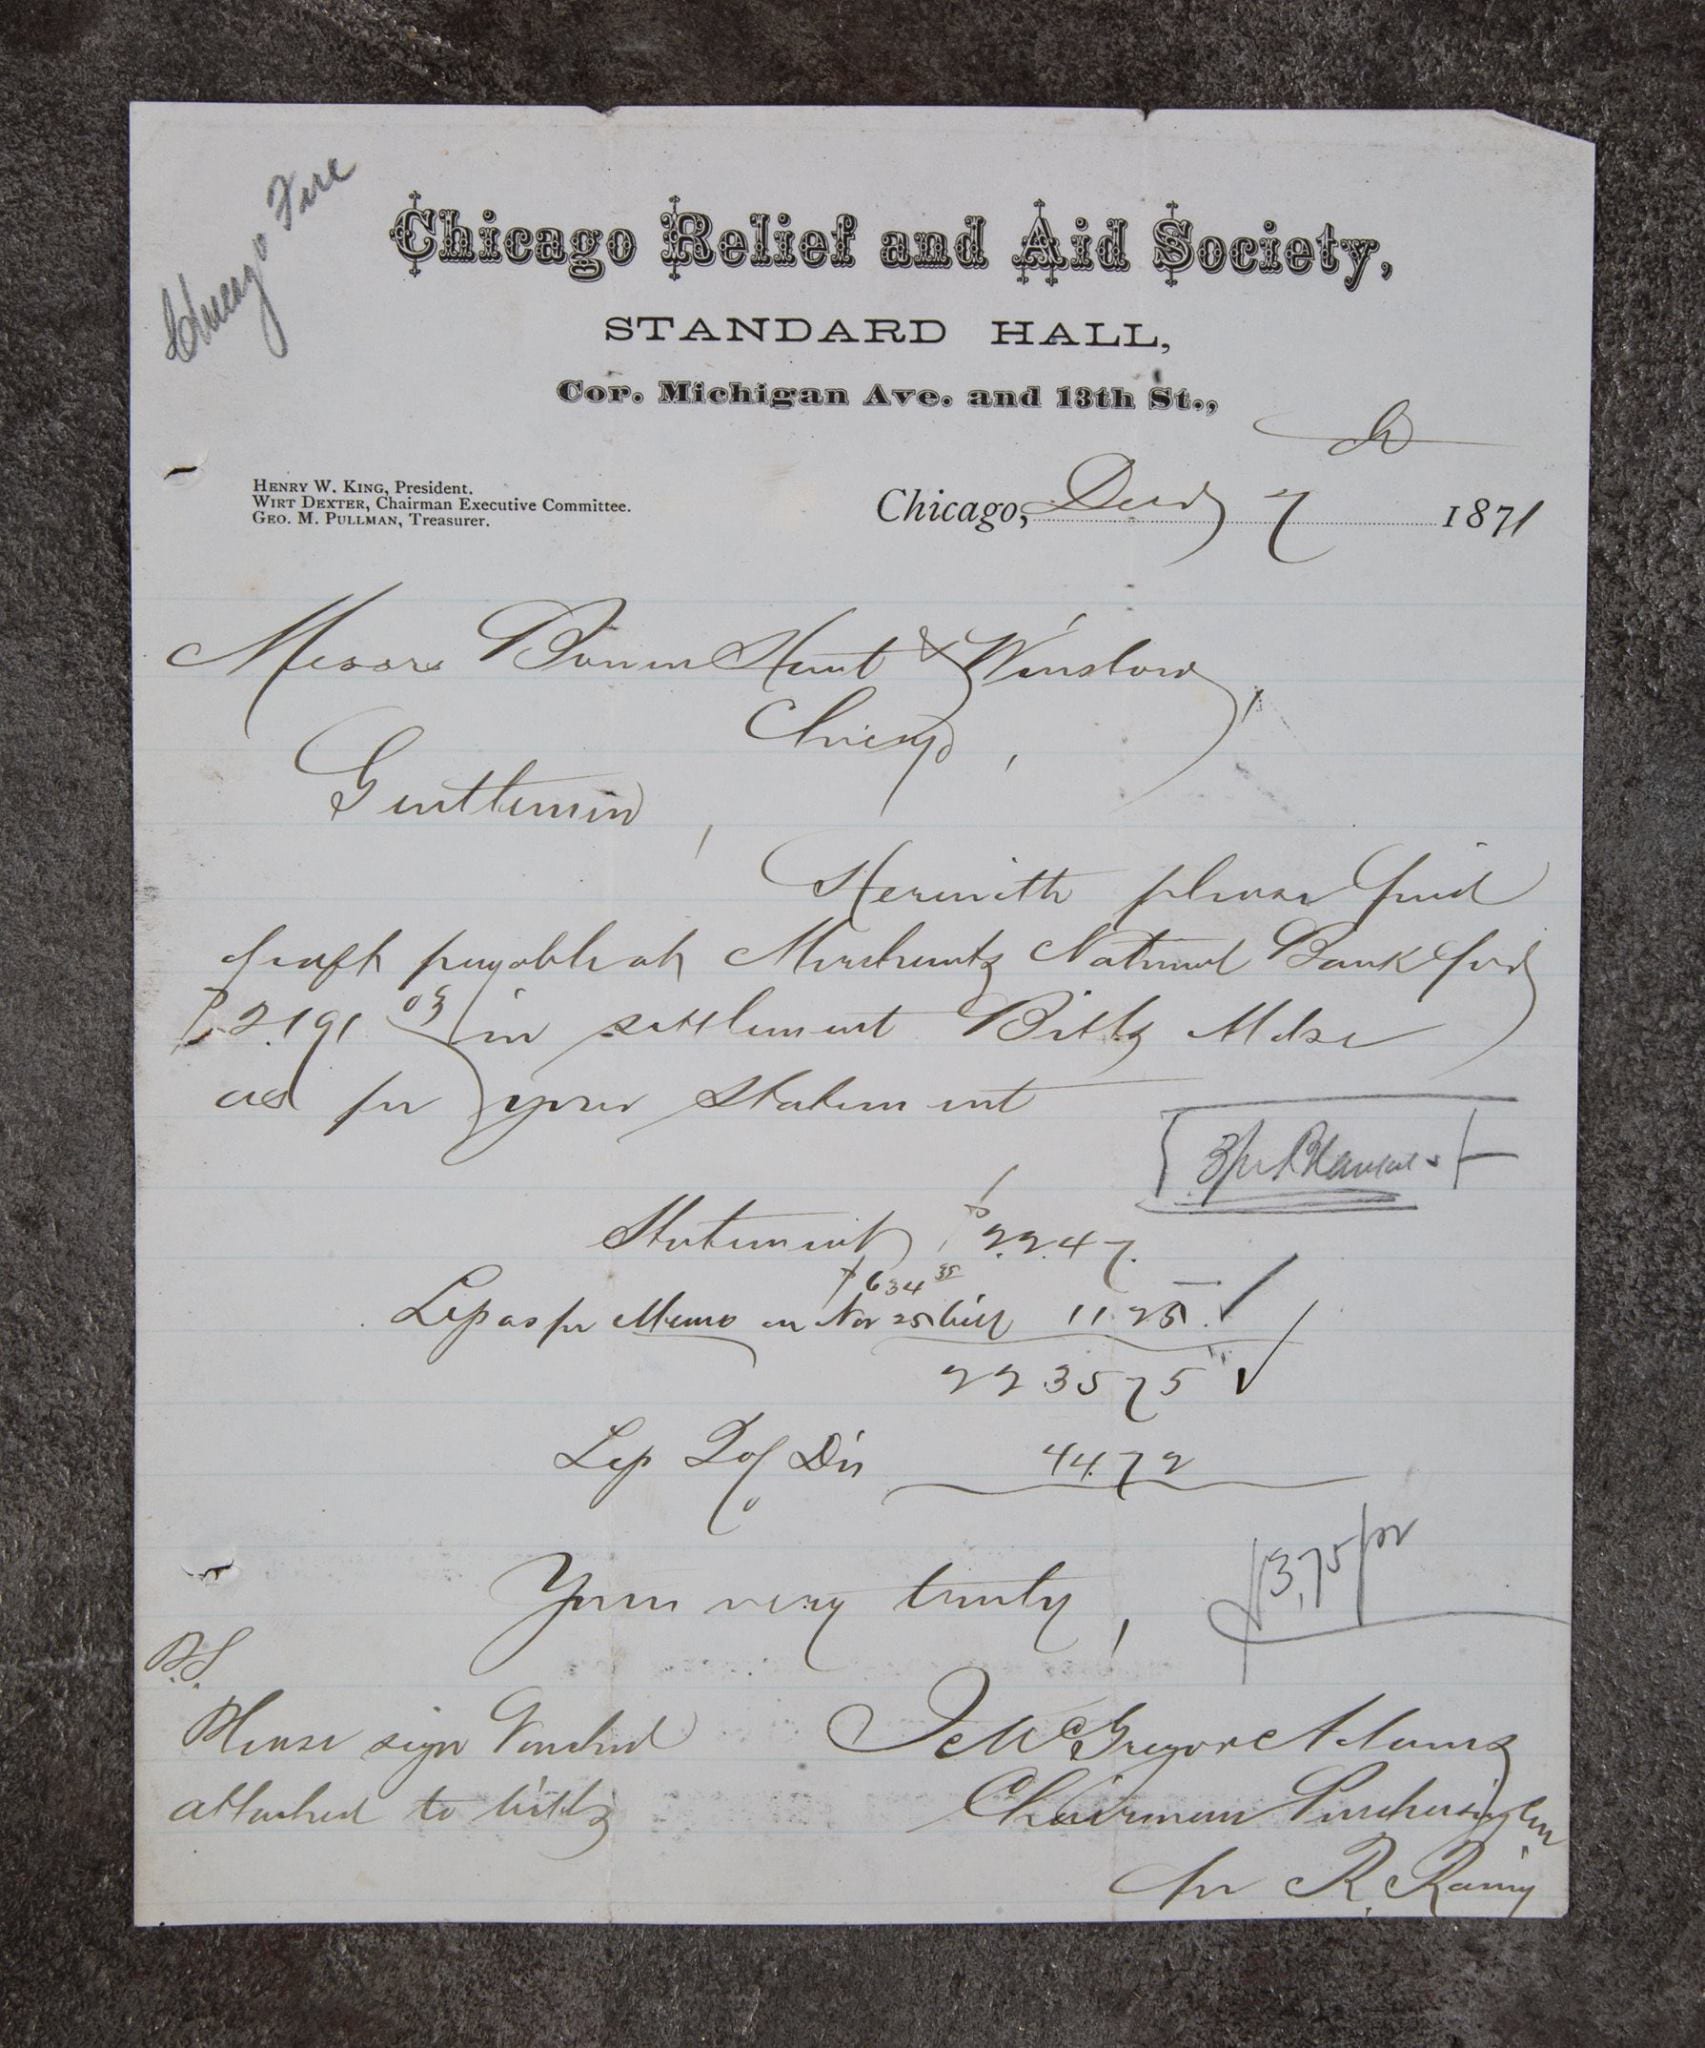 Chicago Fire
Chicago Relief and Aid Society,
STANDARD HALL,
Cor. Michigan Ave. and 13th St.,
HENRY W. KING, President.
WIRT DEXTER, Chairman Executive Committee.
GEO. M. PULLMAN, Treasurer.
Chicago, Decr 7 1871
Messrs Bowen Hunt & Winslow,
Chicago,
Gentlemen,
Herewith please find
draft payable at Merchants National Bank for
$2.191 03 in settlement Bills Mdse
as per your statement
Statement, $22.47.
$634 35
Less as per Memo on Nov 25 bill 11.25
223575
Less 2% Dis 44.72
13,75 pr
Yours very truly,
P.S.
Please sign Voucher
attached to bills
J McGregor Adams
Chairman Purchasing Com
per R. Rainy